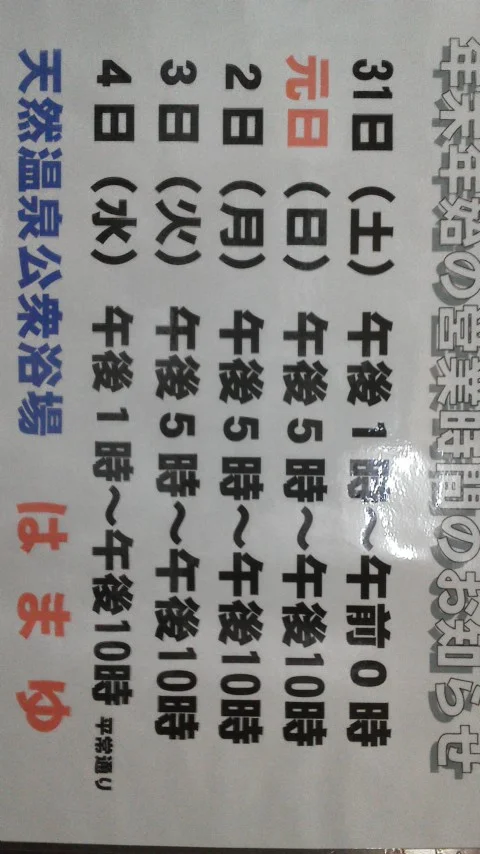 年末年始の営業時間のお知らせ
31日（土）午後1時～午前0時
元日（日）午後5時～午後10時
2日（月）午後5時～午後10時
3日（火）午後5時～午後10時
4日（水）午後1時～午後10時 平常通り
天然温泉公衆浴場 はまゆ